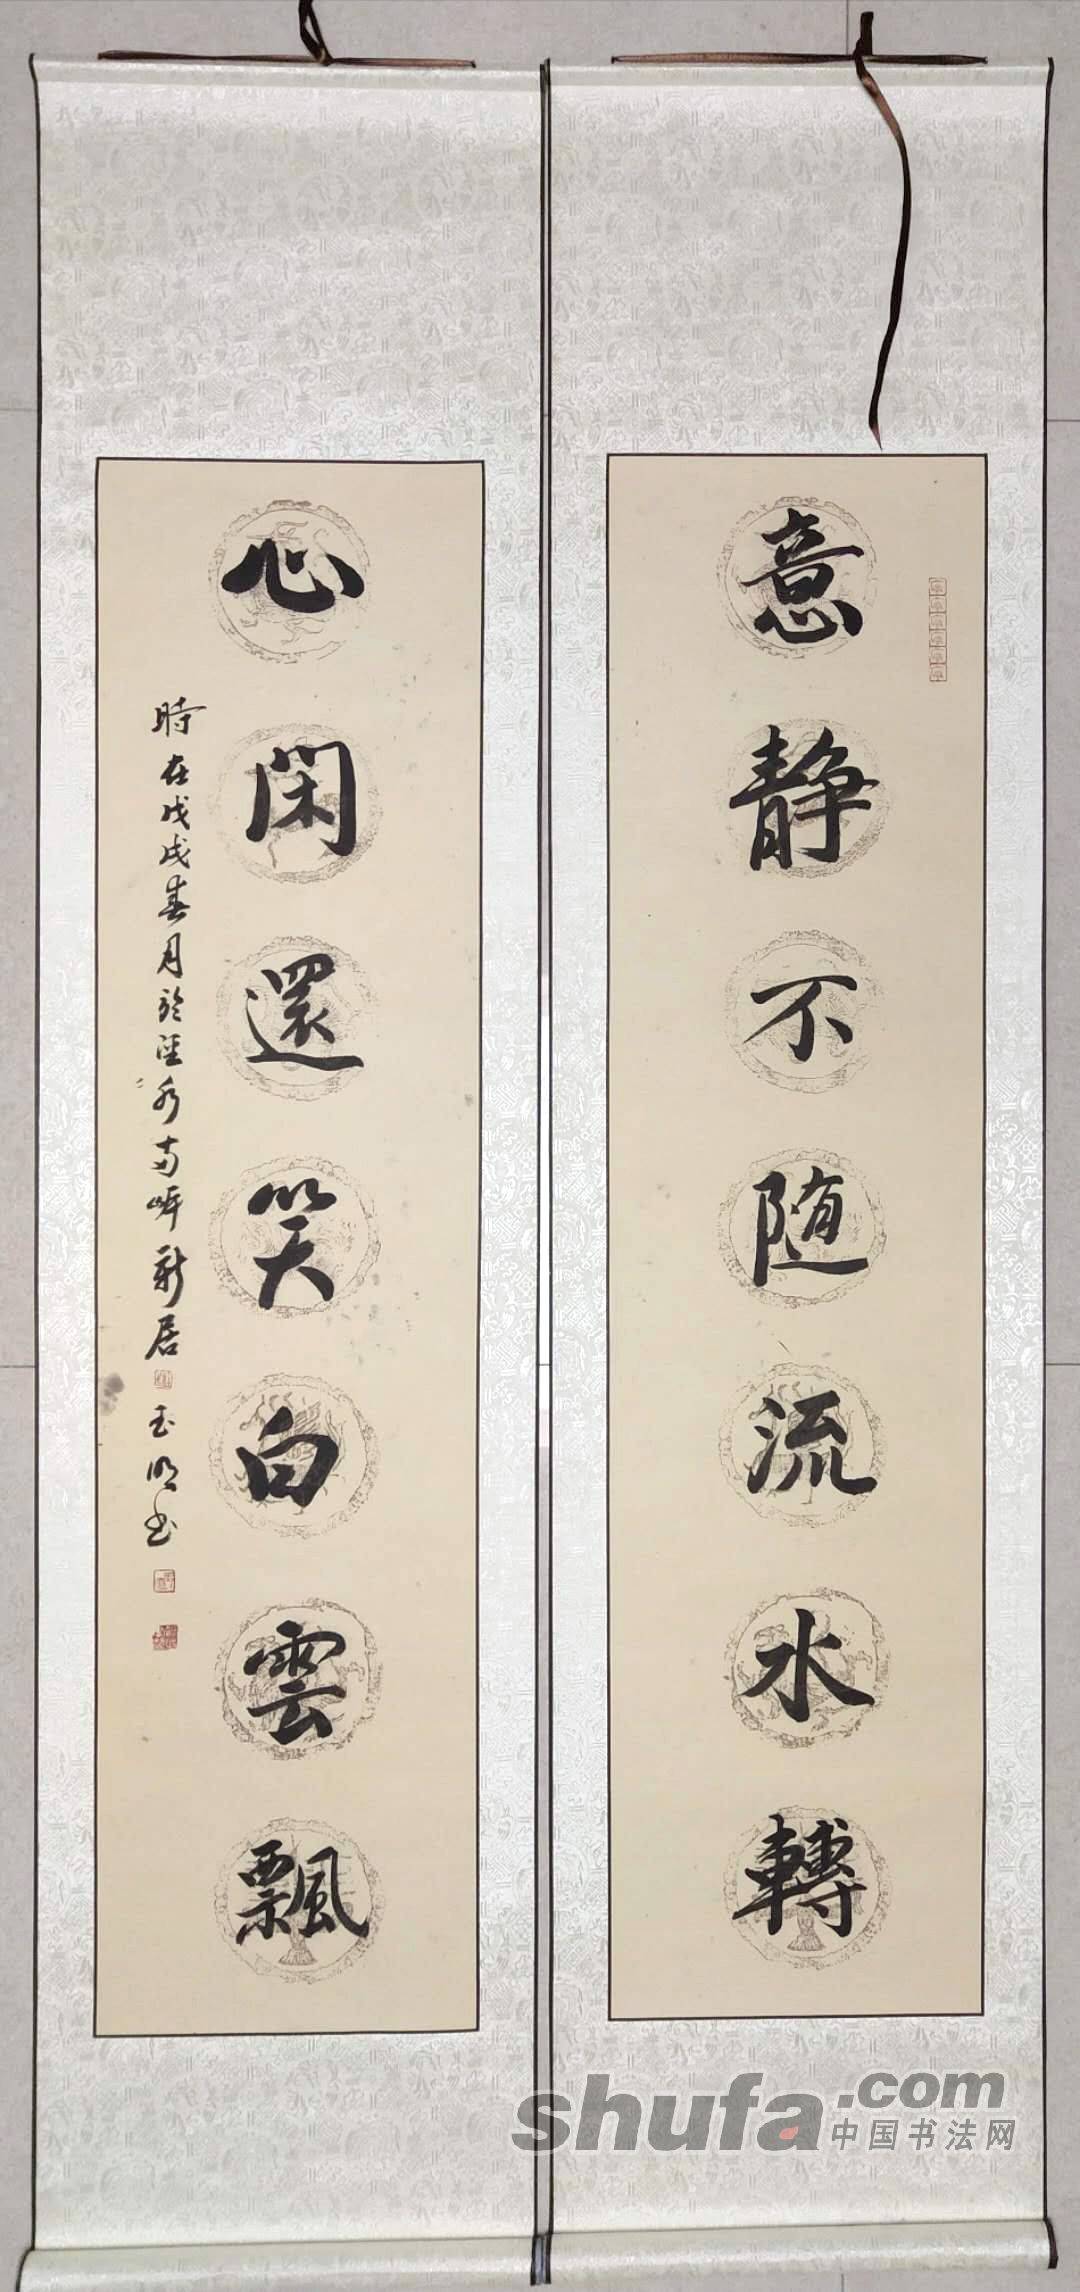 意静不随流水轉
心閑還笑白雲飄
時在戊戌春月於涇水南岸新居
玉明书
shufa.com
中国书法网